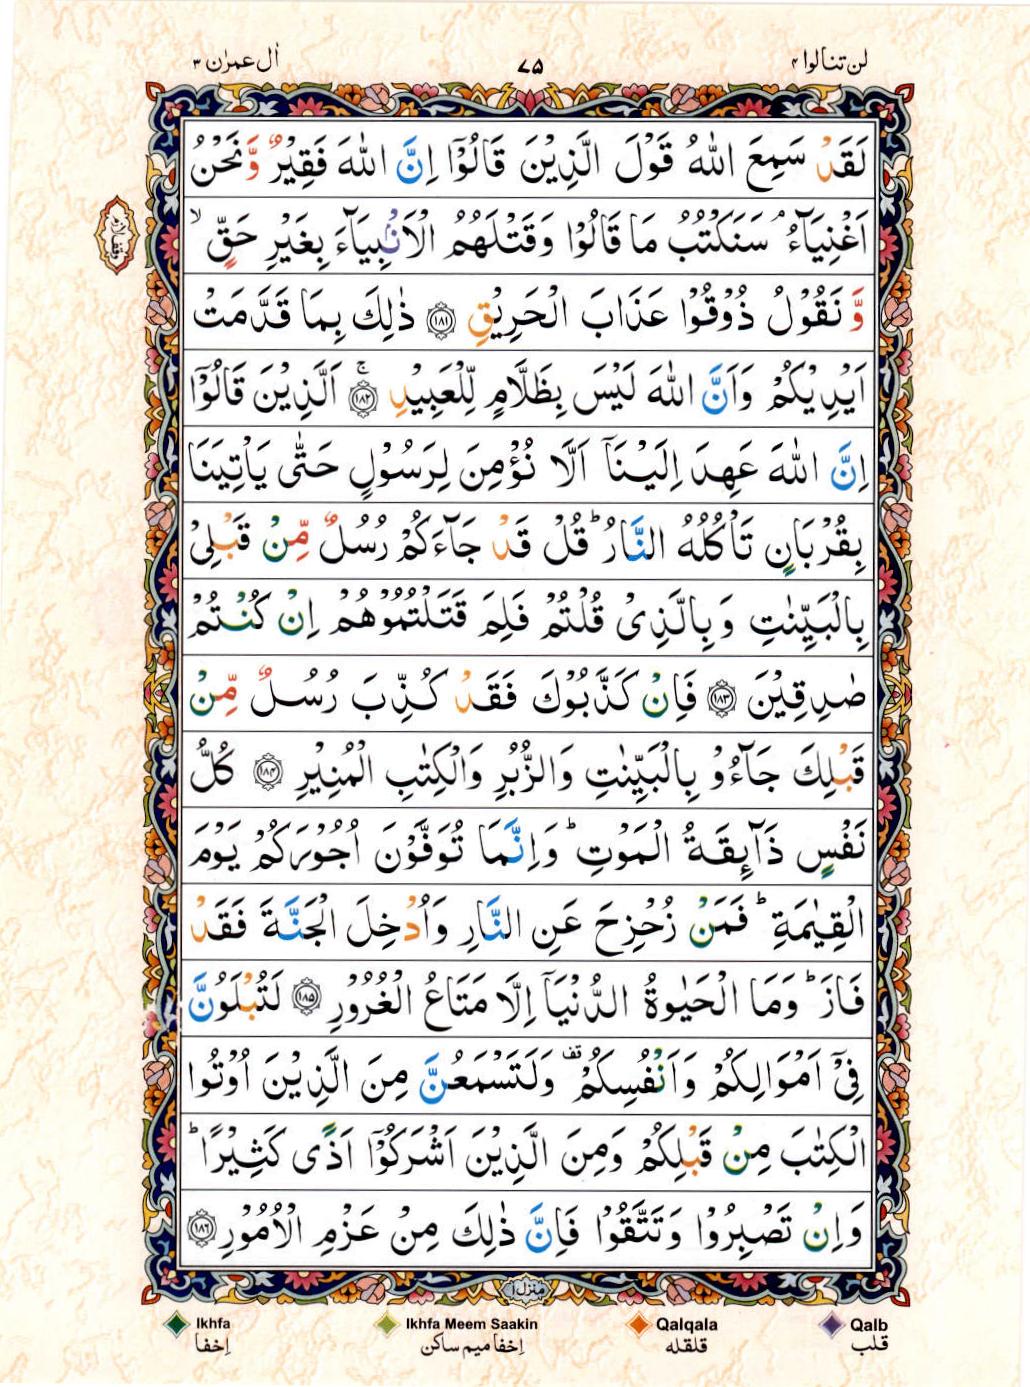 لن تنالوا ۴
۷۵
اٰل عمرٰن ۳
لَقَدْ سَمِعَ اللّٰهُ قَوْلَ الَّذِيْنَ قَالُوْۤا اِنَّ اللّٰهَ فَقِيْرٌ وَّنَحْنُ
اَغْنِيَآءُ ۘ سَنَكْتُبُ مَا قَالُوْا وَقَتْلَهُمُ الْاَنْۢبِيَآءَ بِغَيْرِ حَقٍّ ۙ
وقف لازم
وَّنَقُوْلُ ذُوْقُوْا عَذَابَ الْحَرِيْقِ ﴿۱۸۱﴾ ذٰلِكَ بِمَا قَدَّمَتْ
اَيْدِيْكُمْ وَاَنَّ اللّٰهَ لَيْسَ بِظَلَّامٍ لِّلْعَبِيْدِ ۚ ﴿۱۸۲﴾ اَلَّذِيْنَ قَالُوْۤا
اِنَّ اللّٰهَ عَهِدَ اِلَيْنَاۤ اَلَّا نُؤْمِنَ لِرَسُوْلٍ حَتّٰى يَاْتِيَنَا
بِقُرْبَانٍ تَاْكُلُهُ النَّارُ ؕ قُلْ قَدْ جَآءَكُمْ رُسُلٌ مِّنْ قَبْلِىْ
بِالْبَيِّنٰتِ وَبِالَّذِىْ قُلْتُمْ فَلِمَ قَتَلْتُمُوْهُمْ اِنْ كُنْتُمْ
صٰدِقِيْنَ ﴿۱۸۳﴾ فَاِنْ كَذَّبُوْكَ فَقَدْ كُذِّبَ رُسُلٌ مِّنْ
قَبْلِكَ جَآءُوْ بِالْبَيِّنٰتِ وَالزُّبُرِ وَالْكِتٰبِ الْمُنِيْرِ ﴿۱۸۴﴾ كُلُّ
نَفْسٍ ذَآئِقَةُ الْمَوْتِ ؕ وَاِنَّمَا تُوَفَّوْنَ اُجُوْرَكُمْ يَوْمَ
الْقِيٰمَةِ ؕ فَمَنْ زُحْزِحَ عَنِ النَّارِ وَاُدْخِلَ الْجَنَّةَ فَقَدْ
فَازَ ؕ وَمَا الْحَيٰوةُ الدُّنْيَاۤ اِلَّا مَتَاعُ الْغُرُوْرِ ﴿۱۸۵﴾ لَتُبْلَوُنَّ
فِىْۤ اَمْوَالِكُمْ وَاَنْفُسِكُمْ قف وَلَتَسْمَعُنَّ مِنَ الَّذِيْنَ اُوْتُوا
الْكِتٰبَ مِنْ قَبْلِكُمْ وَمِنَ الَّذِيْنَ اَشْرَكُوْۤا اَذًى كَثِيْرًا ؕ
وَاِنْ تَصْبِرُوْا وَتَتَّقُوْا فَاِنَّ ذٰلِكَ مِنْ عَزْمِ الْاُمُوْرِ ﴿۱۸۶﴾
منزل ۱
Ikhfa
Ikhfa Meem Saakin
Qalqala
Qalb
اِخفا
اِخفا میم ساکن
قلقله
قلب